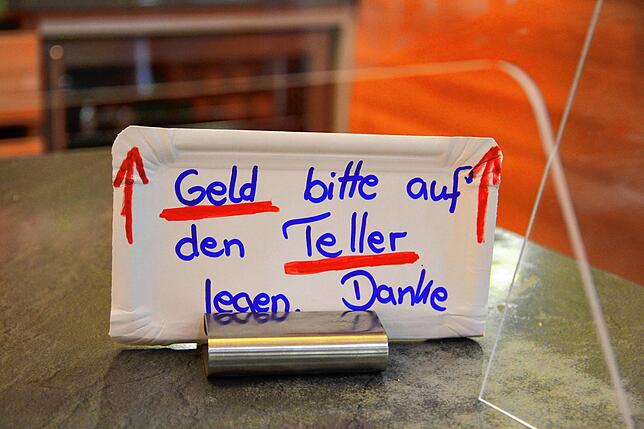 Geld bitte auf
den Teller
legen. Danke